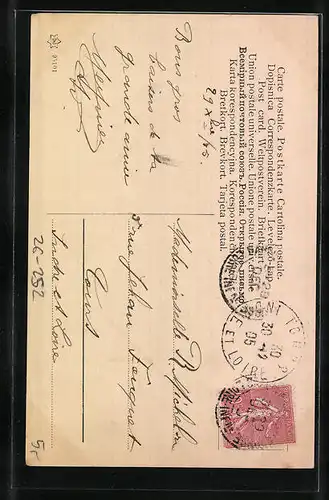 Carte postale. Postkarte Cartolina postale.
Dopisnica Correspondenzkarte. Levelező-Lap
Post card. Weltpostverein. Briefkaart
Union postale universelle. Unione postale universale
Всемірный почтовый союзъ. Россія. Открытое письмо
Karta korespondencyjna. Koresponden
Brefkort. Brevkort. Tarjeta postal.
29 Xbre 05
Bons gros
baisers de ta
grande amie
9101
Mademoiselle B. Michelon
rue Jehan Fouquet
Tours
Indre et Loire
26-252
5,-
30
05